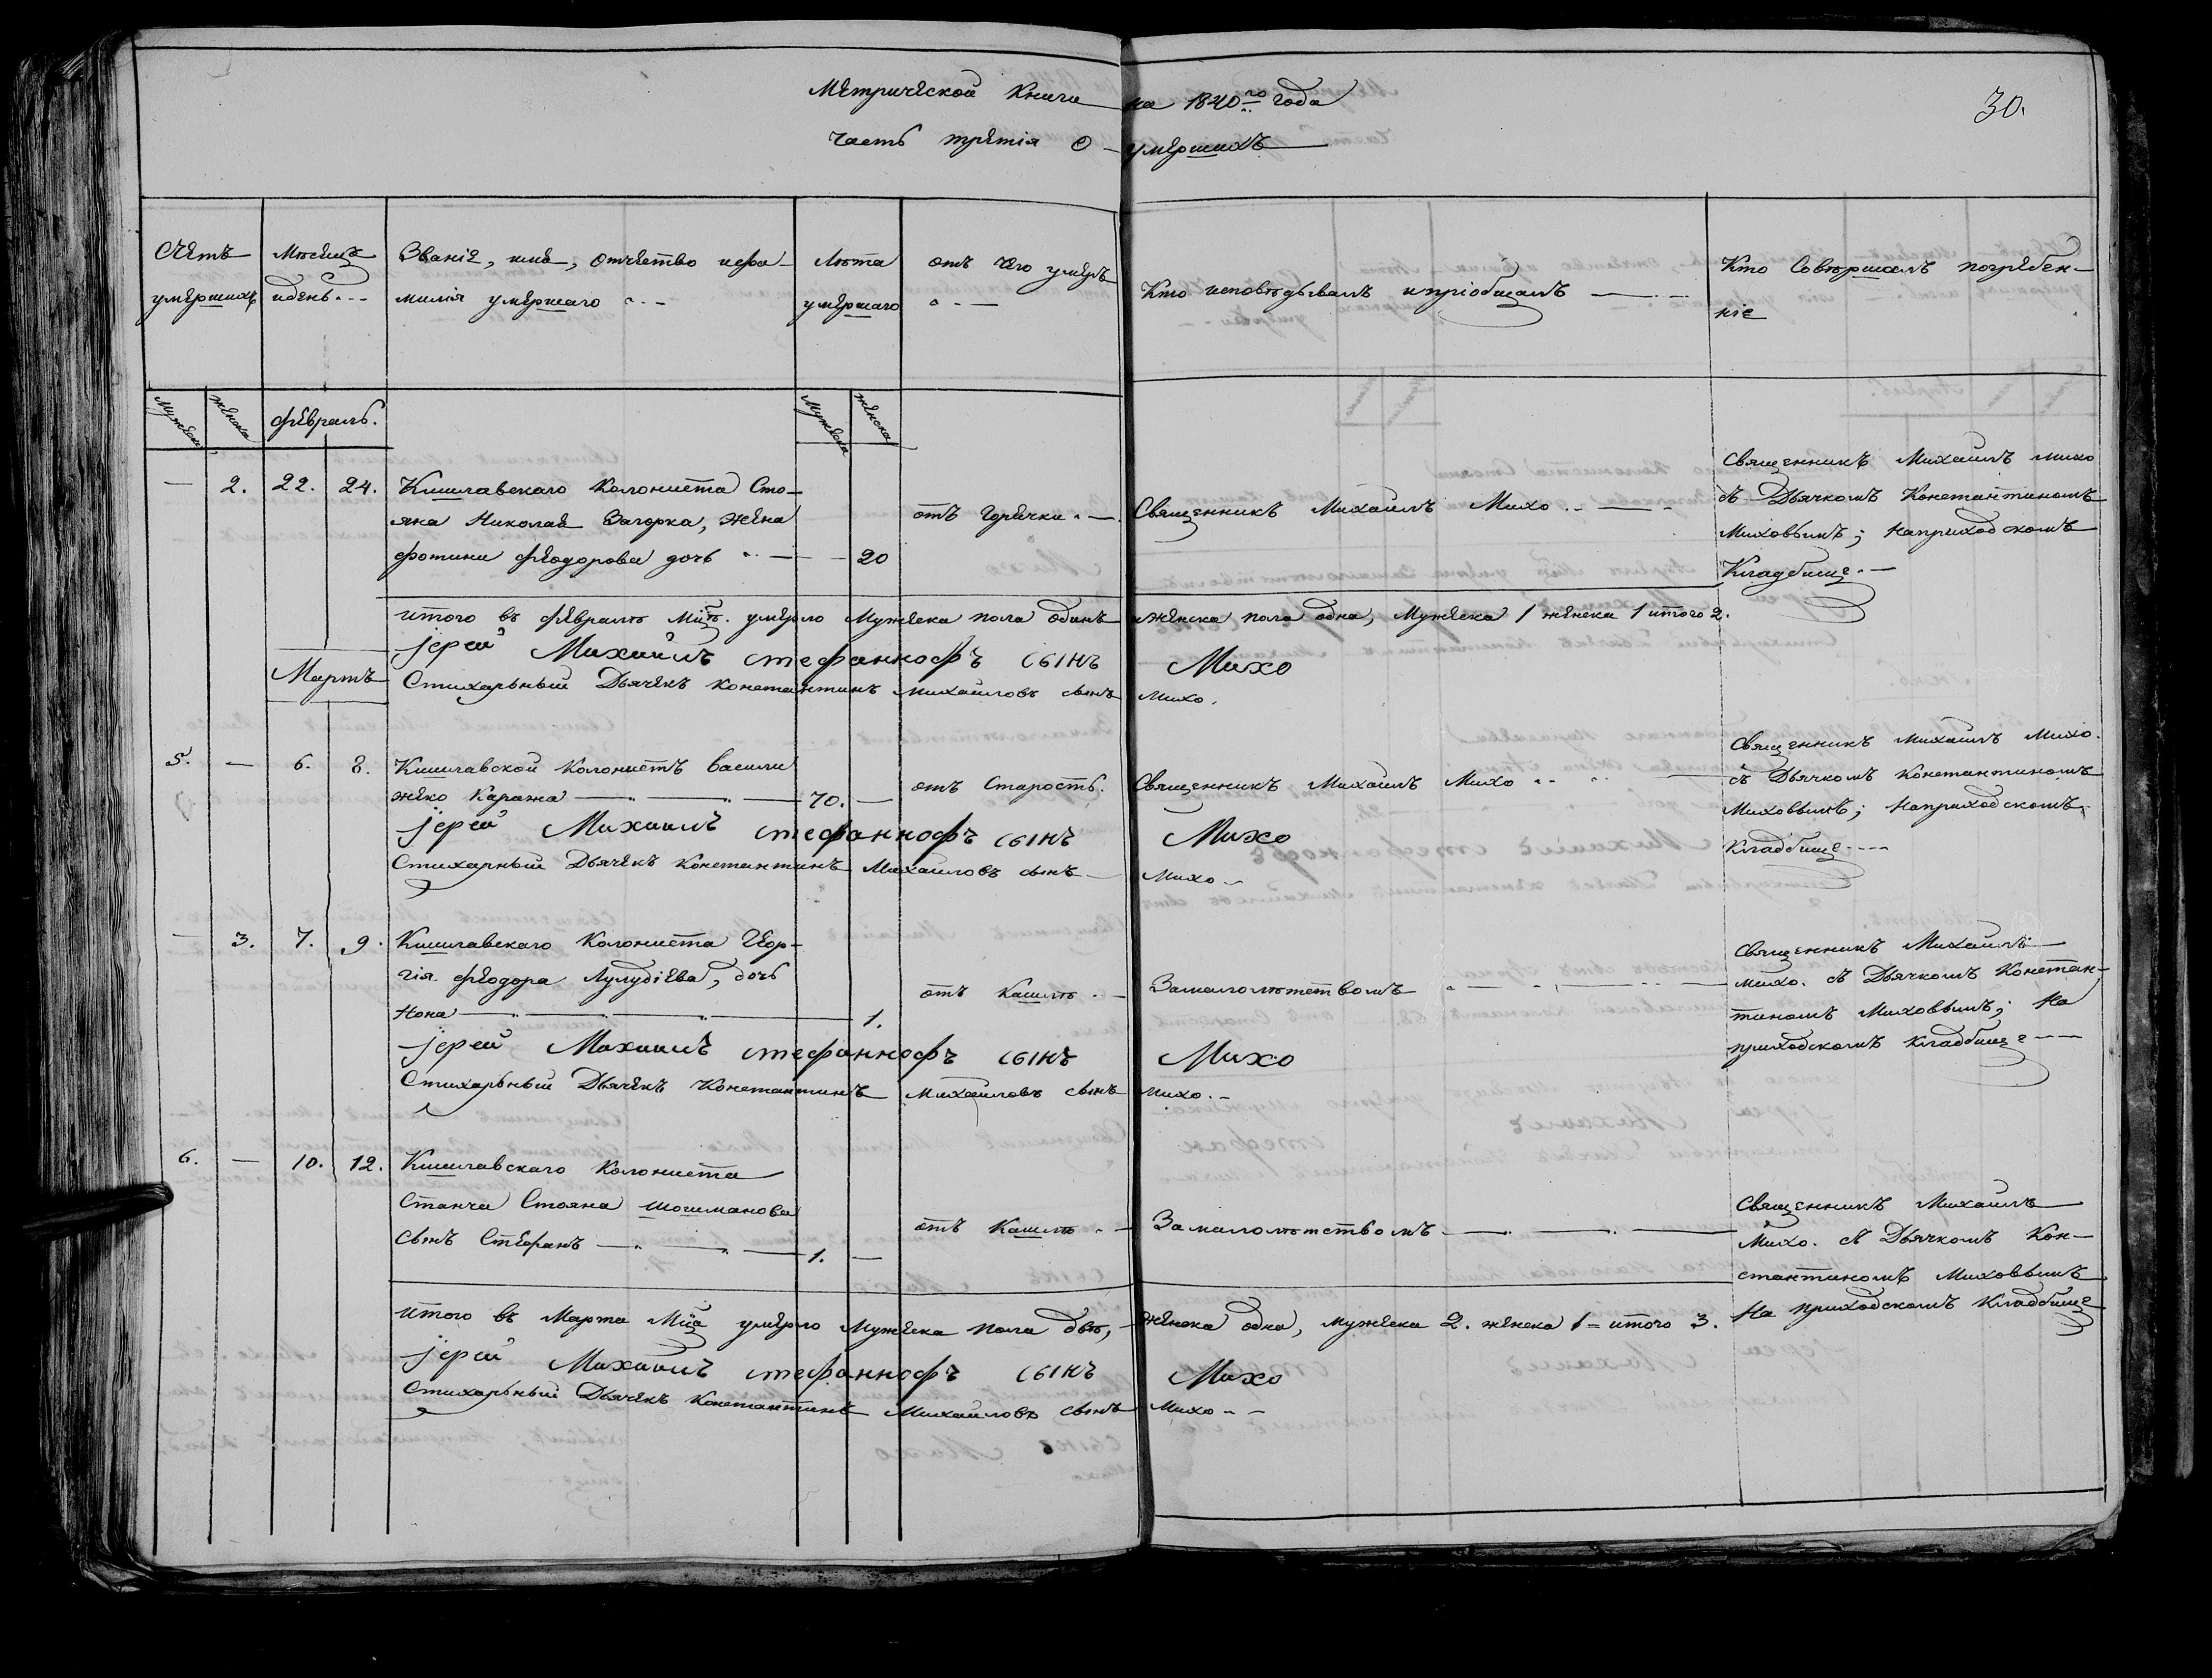 Метрической Книги на 1840го года
30.
Часть третія о умершихъ
Счетъ умершихъ
Месяцъ идень
Званіе, имя, отчество ифа-
милія умершаго
Лѣта умершаго
отъ чего умеръ
Кто исповѣдывалъ ипріобщалъ
Кто Совершалъ погребен-
ніе
Мужеска
женска
февраль.
Мужеска
женска
— 2. 22. 24. Кишлавскаго Колониста Сто-
яна Николая Загорка, жена
фотини феодорова дочь — 20
отъ Горячки
Священникъ Михаилъ Михо
Священникъ Михаилъ Михо
съ Дьячкомъ Константиномъ
Миховымъ; наприходскомъ
Кладбище
итого въ февралѣ Мцѣ. умерло Мужеска пола одинъ иженска пола одна, Мужеска 1 женска 1 итого 2.
јерей Михаилъ стефанкофъ сынъ Михо
Стихарьный Дьячекъ Константинъ Михаиловъ сынъ Михо.
Мартъ
5. — 6. 8. Кишлавской Колонистъ Васили
жеко Каража 70. —
отъ Старость.
Священникъ Михаилъ Михо
Священникъ Михаилъ Михо.
съ Дьячкомъ Константиномъ
Миховымъ; Наприходскомъ
Кладбище
јерей Михаилъ стефанкофъ сынъ Михо
Стихарный Дьячекъ Константинъ Михаиловъ сынъ Михо
— 3. 7. 9. Кишлавскаго Колониста Геор-
гія феодора Лулудіева, дочь
Нона 1.
отъ Кашлѣ
Замалолѣтетвомъ
Священникъ Михаилъ
Михо. съ Дьячкомъ Констан-
тиномъ Миховымъ; На
приходскомъ Кладбище
јерей Михаилъ стефанкофъ сынъ Михо
Стихарьный Дьячекъ Константинъ Михаиловъ сынъ Михо.
6. — 10. 12. Кишлавскаго Колониста
Станчи Стояна Шошманова
сынъ Стефанъ 1. —
отъ Кашлѣ
Замалолѣтствомъ
Священникъ Михаилъ
Михо. съ Дьячкомъ Кон-
стантиномъ Миховымъ
На приходскомъ Кладбище
итого въ Марта Мца умерло Мужеска пола двѣ, женска одна, мужеска 2. женска 1 = итого 3.
јерей Михаилъ стефанкофъ сынъ Михо
Стихарьный Дьячекъ Константинъ Михаиловъ сынъ Михо